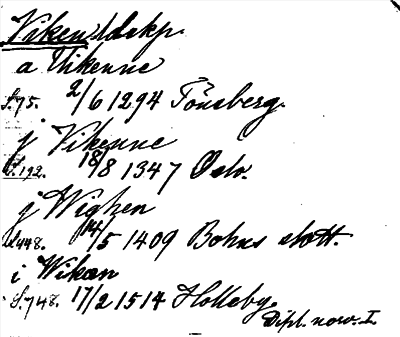 Viken ldskp.
a Vikenne
S. 75. 2/6 1294 Tönsberg.
j Vikenne
S. 192. 18/8 1347 Oslo.
j Wighen
S. 448. 14/5 1409 Bohus slott.
i Wikæn
S. 748. 17/2 1514 Holleby.
Dipl. norv. I.